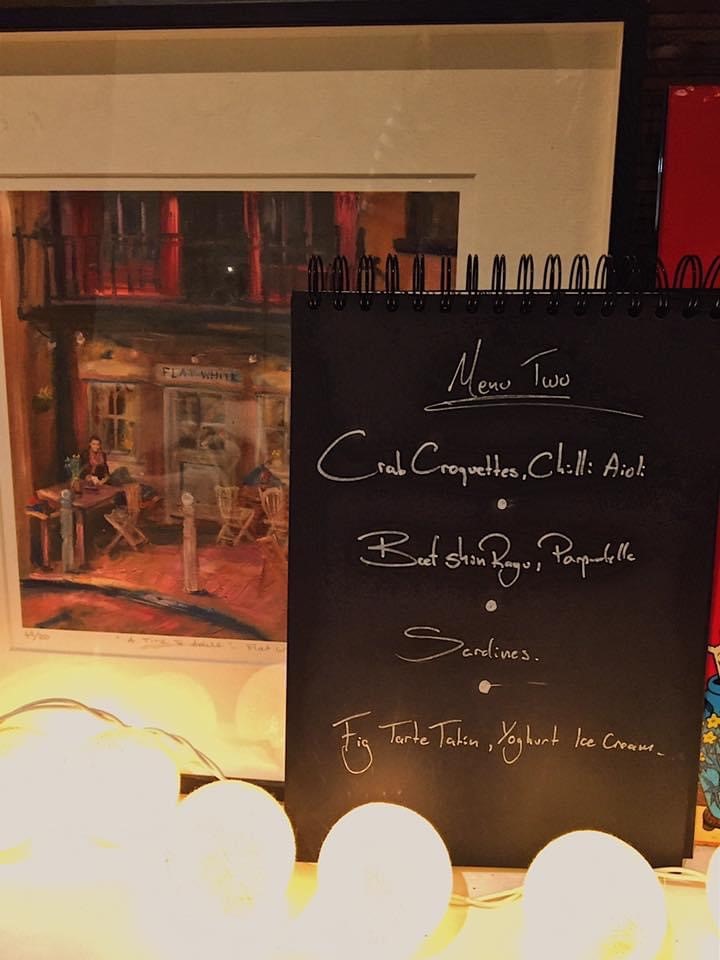 FLAT WHITE
Menu Two
Crab Croquettes, Chilli Aioli
Beef Shin Ragu, Pappardelle
Sardines.
Fig Tarte Tatin, Yoghurt Ice Cream.
"A Time to